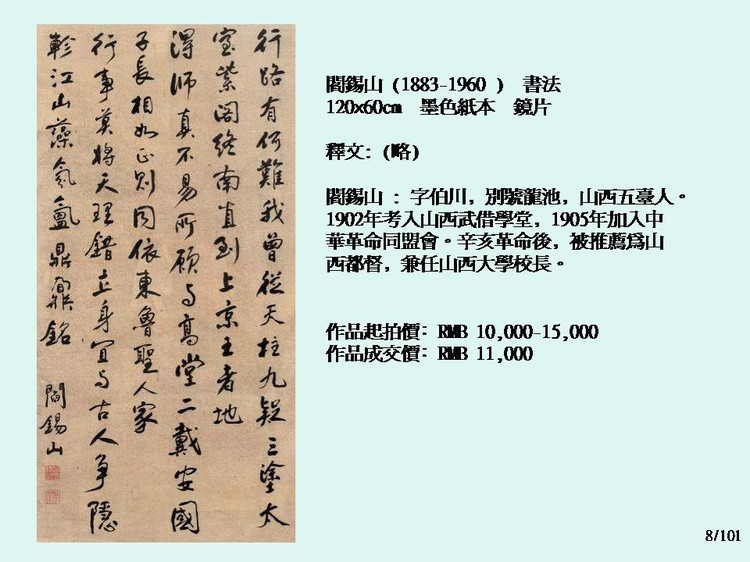 行路有何難我曾從天柱九疑三塗太
室紫閣終南直到上京王者地
得師真不易所願与高堂二戴安國
子長相如正則同依東魯聖人家
行事莫將天理錯立身宜与古人爭隱
軫江山藻氣氳鼎鼐銘
閻錫山
閻錫山 (1883-1960 ) 書法
120x60cm 墨色紙本 鏡片
釋文: (略)
閻錫山 : 字伯川, 別號龍池, 山西五臺人。
1902年考入山西武借學堂, 1905年加入中
華革命同盟會。辛亥革命後, 被推薦爲山
西都督, 兼任山西大學校長。
作品起拍價: RMB 10,000-15,000
作品成交價: RMB 11,000
8/101